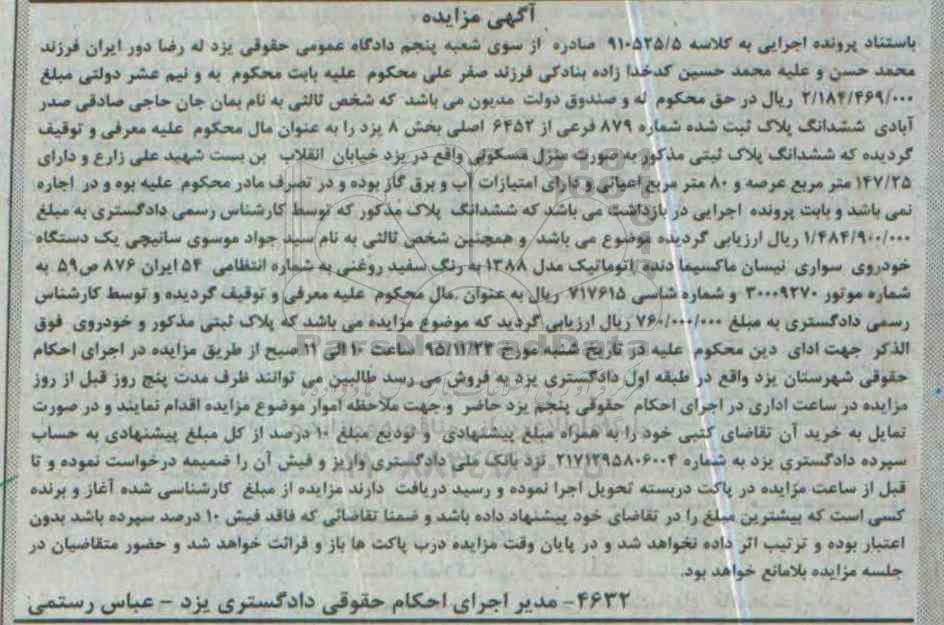 آگهی مزایده
باستناد پرونده اجرایی به کلاسه ۹۱۰۵۲۵/۵ صادره از سوی شعبه پنجم دادگاه عمومی حقوقی یزد له رضا دور ایران فرزند
محمد حسن و علیه محمد حسین کدخدا زاده بنادکی فرزند صفر علی محکوم علیه بابت محکوم به و نیم عشر دولتی مبلغ
۲/۱۸۴/۴۶۹/۰۰۰ ریال در حق محکوم له و صندوق دولت مدیون می باشد که شخص ثالثی به نام یمان جان حاجی صادقی صدر
آبادی ششدانگ پلاک ثبت شده شماره ۸۷۹ فرعی از ۶۴۵۲ اصلی بخش ۸ یزد را به عنوان مال محکوم علیه معرفی و توقیف
گردیده که ششدانگ پلاک ثبتی مذکور به صورت منزل مسکونی واقع در یزد خیابان انقلاب بن بست شهید علی زارع و دارای
۱۴۷/۲۵ متر مربع عرصه و ۸۰ متر مربع اعیانی و دارای امتیازات آب و برق گاز بوده و در تصرف مادر محکوم علیه بوه و در اجاره
نمی باشد و بابت پرونده اجرایی در بازداشت می باشد که ششدانگ پلاک مذکور که توسط کارشناس رسمی دادگستری به مبلغ
۱/۴۸۴/۹۰۰/۰۰۰ ریال ارزیابی گردیده موضوع می باشد و همچنین شخص ثالثی به نام سید جواد موسوی سانیچی یک دستگاه
خودروی سواری نیسان ماکسیما دنده اتوماتیک مدل ۱۳۸۸ به رنگ سفید روغنی به شماره انتظامی ۵۴ ایران ۸۷۶ ص۵۹ به
شماره موتور ۳۰۰۰۹۲۷۰ و شماره شاسی ۷۱۷۶۱۵ ریال به عنوان مال محکوم علیه معرفی و توقیف گردیده و توسط کارشناس
رسمی دادگستری به مبلغ ۷۶۰/۰۰۰/۰۰۰ ریال ارزیابی گردید که موضوع مزایده می باشد که پلاک ثبتی مذکور و خودروی فوق
الذکر جهت ادای دین محکوم علیه در تاریخ شنبه مورخ ۹۵/۱۱/۲۳ ساعت ۱۰ الی ۱۱ صبح از طریق مزایده در اجرای احکام
حقوقی شهرستان یزد واقع در طبقه اول دادگستری یزد به فروش می رسد طالبین می توانند ظرف مدت پنج روز قبل از روز
مزایده در ساعت اداری در اجرای احکام حقوقی پنجم یزد حاضر و جهت ملاحظه اموار موضوع مزایده اقدام نمایند و در صورت
تمایل به خرید آن تقاضای کتبی خود را به همراه مبلغ پیشنهادی و تودیع مبلغ ۱۰ درصد از کل مبلغ پیشنهادی به حساب
سپرده دادگستری یزد به شماره ۲۱۷۱۲۹۵۸۰۶۰۰۴ نزد بانک ملی دادگستری واریز و فیش آن را ضمیمه درخواست نموده و تا
قبل از ساعت مزایده در پاکت دربسته تحویل اجرا نموده و رسید دریافت دارند مزایده از مبلغ کارشناسی شده آغاز و برنده
کسی است که بیشترین مبلغ را در تقاضای خود پیشنهاد داده باشد و ضمنا تقاضائی که فاقد فیش ۱۰ درصد سپرده باشد بدون
اعتبار بوده و ترتیب اثر داده نخواهد شد و در پایان وقت مزایده درب پاکت ها باز و قرائت خواهد شد و حضور متقاضیان در
جلسه مزایده بلامانع خواهد بود.
۴۶۳۲- مدیر اجرای احکام حقوقی دادگستری یزد - عباس رستمی
ParsNamadData